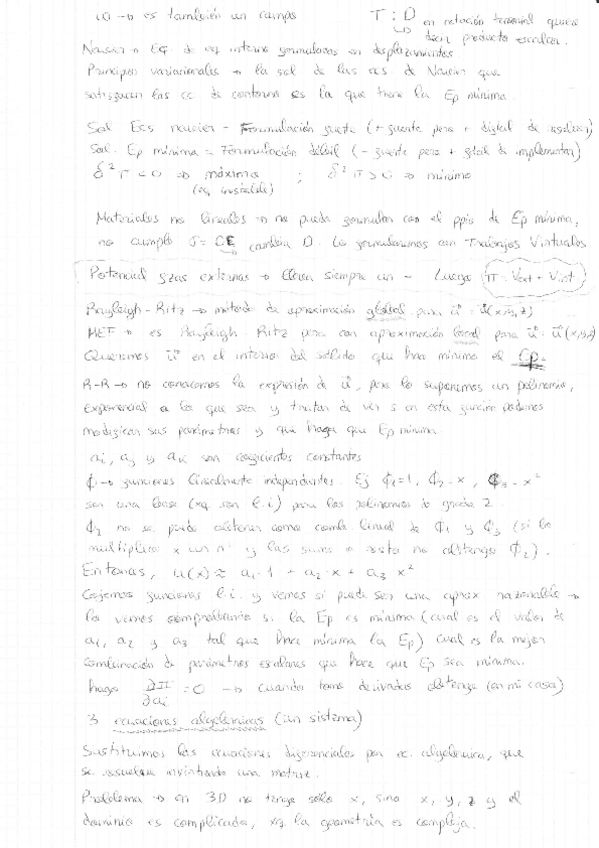 10 → es también un campo    T : D en notación tensorial quiere
decir producto escalar.
Navier → Eq. de eq. interno formuladas en desplazamientos
Principios variacionales → la sol de las ecs. de Navier que
satisfacen las cc. de contorno es la que tiene la Ep mínima.
Sol. Ecs navier = Formulación fuerte (+ fuerte pero + difícil de resolver)
Sol. Ep mínima = Formulación débil (- fuerte pero + fácil de implementar)
δ²π < 0 ⇒ máximo ; δ²π > 0 ⇒ mínimo
(eq. inestable)
Materiales no lineales → no puedo formular con el ppio de Ep mínima,
no cumplo σ = CE → cambia D. Lo formularemos con Trabajos Virtuales
Potencial fzas externas → lleva siempre un - Luego π = Vext + Vint
Rayleigh-Ritz → método de aproximación global para u⃗ = u⃗(x,y,z)
MEF → es Rayleigh-Ritz pero con aproximación local para u⃗ = u⃗(x,y,z)
Queremos u⃗ en el interior del sólido que haga mínimo el Ep.
R-R → no conocemos la expresión de u⃗, pero lo suponemos un polinomio,
exponencial o lo que sea y tratar de ver si en esta función podemos
modificar sus parámetros y que haga que Ep mínima
ai, aj y ak son coeficientes constantes
ϕ → funciones linealmente independientes. Ej ϕ1=1, ϕ2=x, ϕ3=x²
son una base (xq son l.i) para los polinomios de grado 2.
ϕ2 no se puede obtener como comb. lineal de ϕ1 y ϕ3 (si lo
multiplico x un nº y las sumo o resto no obtengo ϕ2).
Entonces, u(x) ≈ a1·1 + a2·x + a3·x²
Cogemos funciones l.i. y vemos si puede ser una aprox razonable →
lo vemos comprobando si la Ep es mínima (cual es el valor de
a1, a2 y a3 tal que hace mínima la Ep) cual es la mejor
combinación de parámetros escalares que hace que Ep sea mínima.
hago ∂Π/∂ai = 0 → cuando tomo derivadas obtengo (en mi caso)
3 ecuaciones algebraicas (un sistema)
Sustituimos las ecuaciones diferenciales por ec. algebraica, que
se resuelven invirtiendo una matriz.
Problema → en 3D no tengo sólo x, sino x, y, z y el
dominio es complicado, xq la geometría es compleja.